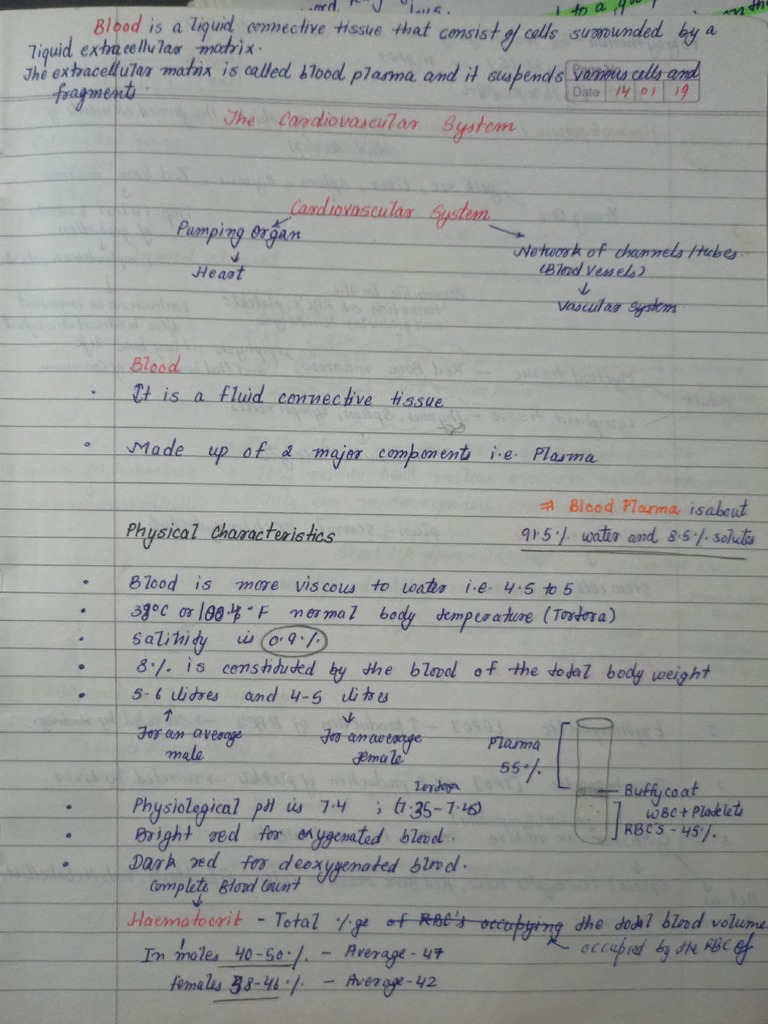 Blood is a liquid connective tissue that consist of cells surrounded by a
liquid extracellular matrix.
The extracellular matrix is called blood plasma and it suspends various cells and
fragments.
Date 14 01 19
The Cardiovascular System
Cardiovascular System
Pumping Organ
Heart
Network of channels/tubes
(Blood Vessels)
Vascular System
Blood
It is a fluid connective tissue
Made up of 2 major components i.e. Plasma
# Blood Plasma is about
91.5% water and 8.5% solutes
Physical Characteristics
Blood is more viscous to water i.e. 4.5 to 5
38°C or 100.4°F normal body temperature (Tortora)
Salinity is 0.9%
8% is constituted by the blood of the total body weight
5-6 litres and 4-5 litres
For an average
male
For an average
female
Plasma
55%
Buffycoat
WBC + Platelets
RBC'S - 45%
Tortora
Physiological pH is 7.4 ; (7.35-7.45)
Bright red for oxygenated blood.
Dark red for deoxygenated blood.
Complete Blood Count
Haematocrit - Total %ge of RBC's occupying the total blood volume
occupied by the RBC of
In males 40-50% - Average-47
females 38-46% - Average-42